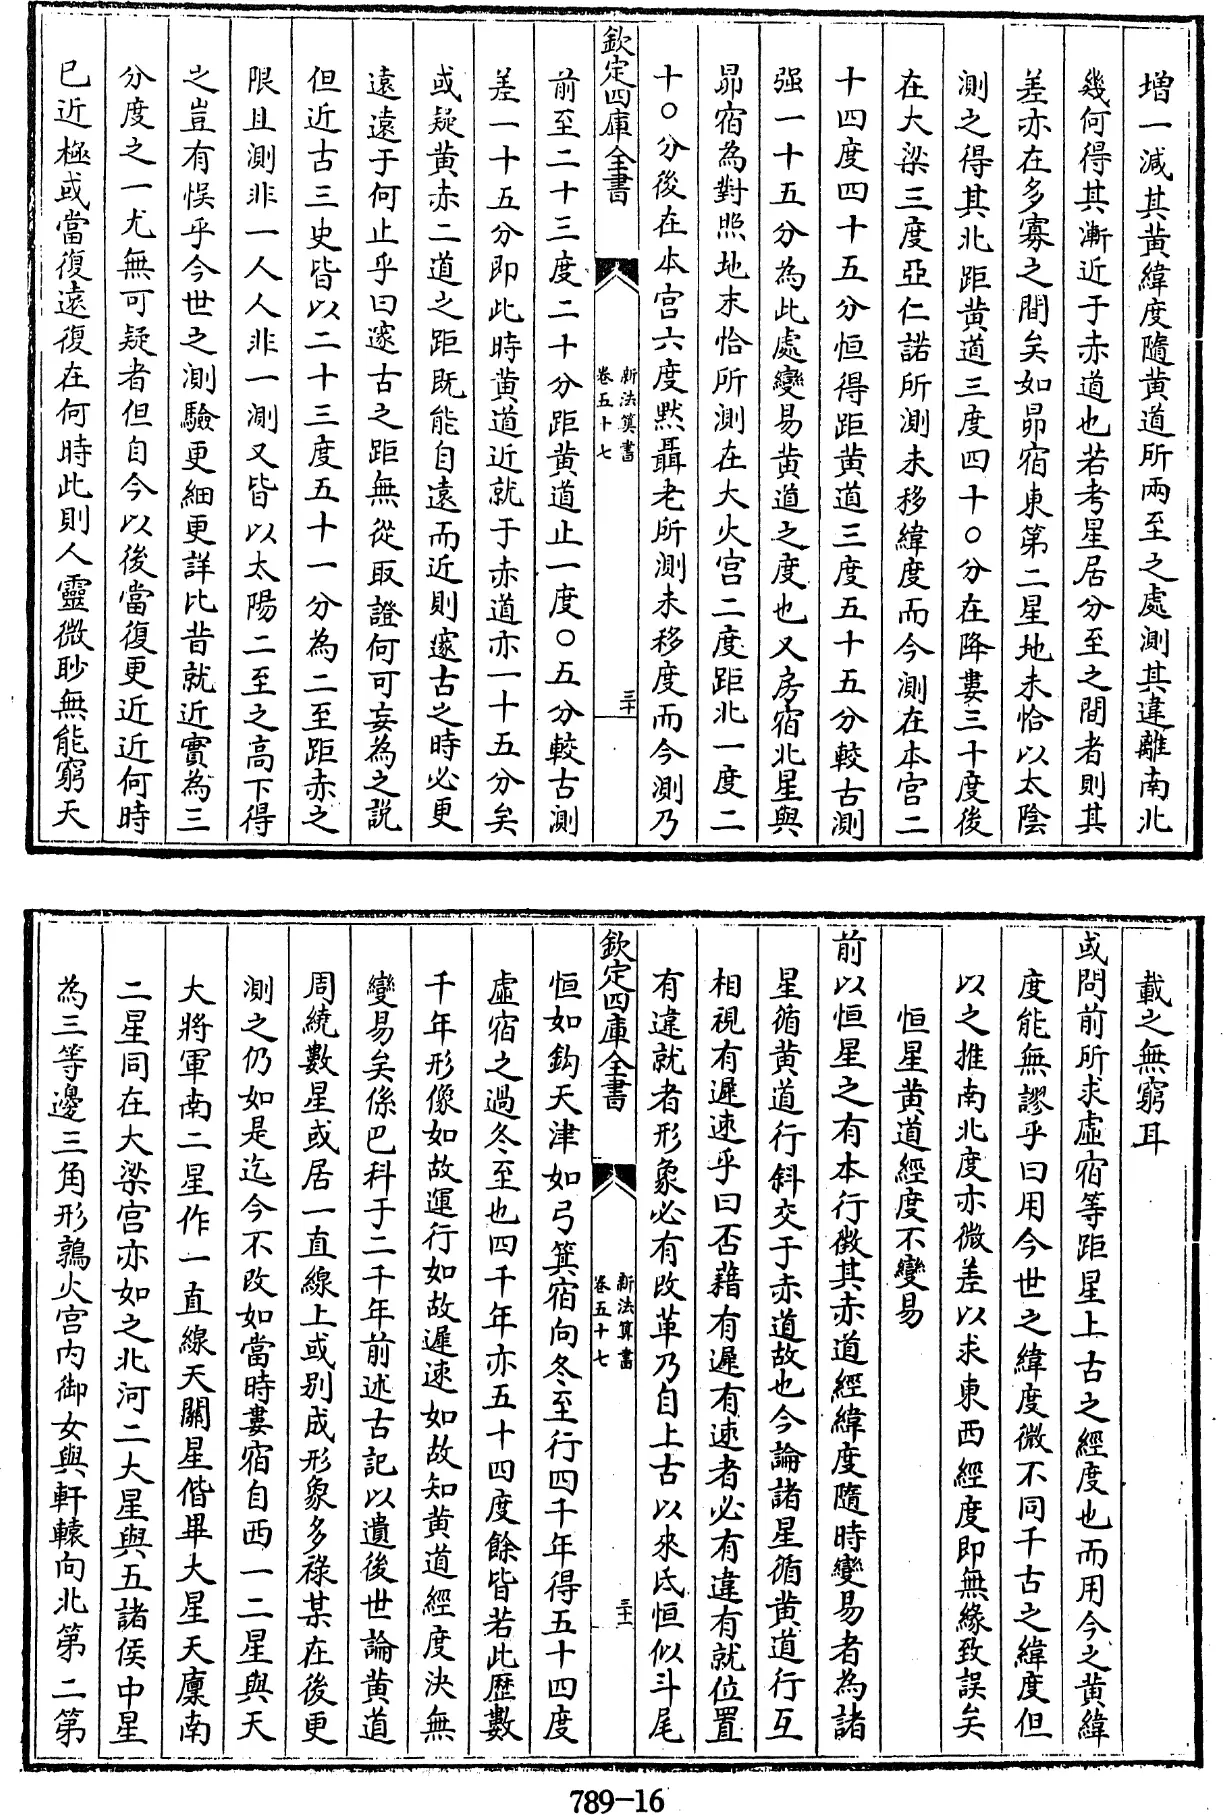 增一減其黄緯度隨黄道所兩至之處測其違離南北
幾何得其漸近于赤道也若考星居分至之間者則其
差亦在多寡之間矣如昴宿東第二星地末恰以太陰
測之得其北距黄道三度四十〇分在降婁三十度後
在大梁三度亞仁諾所測未移緯度而今測在本宫二
十四度四十五分恒得距黄道三度五十五分較古測
强一十五分為此處變易黄道之度也又房宿北星與
昴宿為對照地末恰所測在大火宫二度距北一度二
十〇分後在本宫六度黙聶老所測未移度而今測乃
欽定四庫全書
新法算書
卷五十七
三十
前至二十三度二十分距黄道止一度〇五分較古測
差一十五分即此時黄道近就于赤道亦一十五分矣
或疑黄赤二道之距既能自遠而近則邃古之時必更
遠遠于何止乎曰邃古之距無從取證何可妄為之説
但近古三史皆以二十三度五十一分為二至距赤之
限且測非一人人非一測又皆以太陽二至之高下得
之豈有悮乎今世之測驗更細更詳比昔就近實為三
分度之一尤無可疑者但自今以後當復更近近何時
已近極或當復遠復在何時此則人靈微眇無能窮天
載之無窮耳
或問前所求虚宿等距星上古之經度也而用今之黄緯
度能無謬乎曰用今世之緯度微不同千古之緯度但
以之推南北度亦微差以求東西經度即無緣致誤矣
恒星黄道經度不變易
前以恒星之有本行徴其赤道經緯度隨時變易者為諸
星循黄道行斜交于赤道故也今論諸星循黄道行互
相視有遲速乎曰否藉有遲有速者必有違有就位置
有違就者形象必有改革乃自上古以來氐恒似斗尾
欽定四庫全書
新法算書
卷五十七
三十一
恒如鈎天津如弓箕宿向冬至行四千年得五十四度
虚宿之過冬至也四千年亦五十四度餘皆若此歷數
千年形像如故運行如故遲速如故知黄道經度决無
變易矣係巴科于二千年前述古記以遺後世論黄道
周繞數星或居一直線上或别成形象多禄某在後更
測之仍如是迄今不改如當時婁宿自西一二星與天
大將軍南二星作一直線天關星偕畢大星天廪南
二星同在大梁宫亦如之北河二大星與五諸侯中星
為三等邊三角形鶉火宫内御女與軒轅向北第二第
789-16